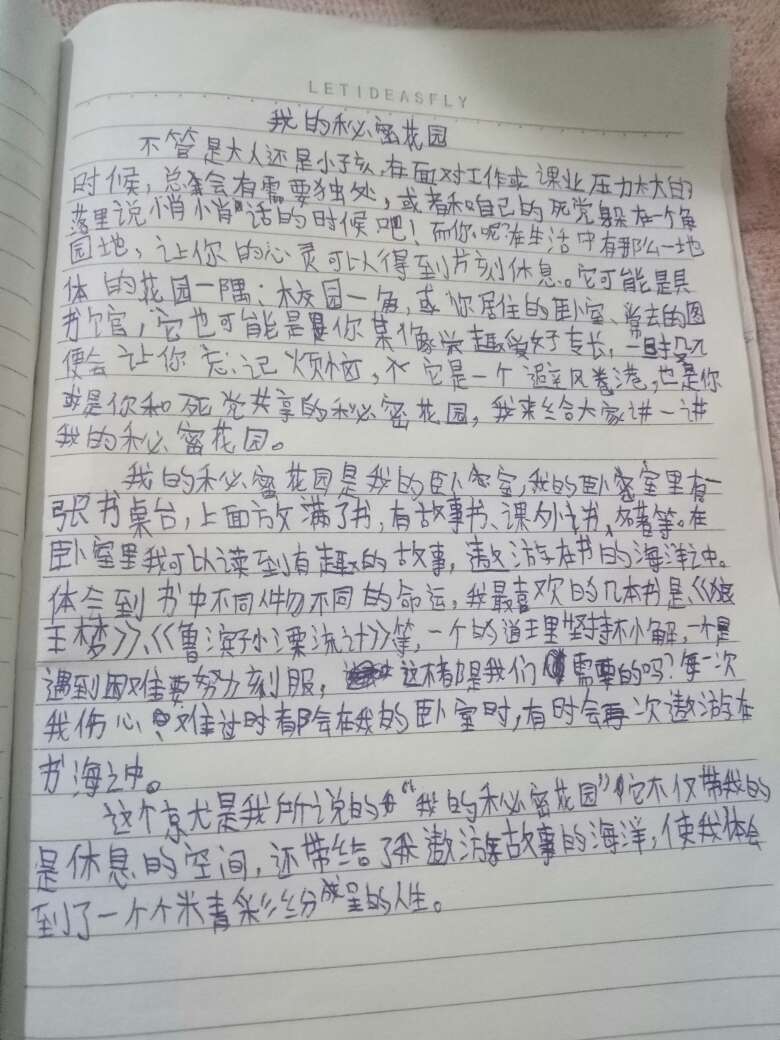 LETIDEASFLY
我的秘密花园
不管是大人还是小孩,在面对工作或课业压力太大的
时候,总会有需要独处,或者和自己的死党躲在一个角
落里说悄悄话的时候吧!而你呢?在生活中有那么一地
园地,让你的心灵可以得到片刻休息。它可能是具
体的花园一隅;校园一角,或你居住的卧室、常去的图
书馆,它也可能是你某个兴趣爱好专长,一旦投入
便会让你忘记烦恼,它是一个避风港,也是你
或是你和死党共享的秘密花园,我来给大家讲一讲
我的秘密花园。
我的秘密花园是我的卧室,我的卧室里有一
张书桌台,上面放满了书,有故事书、课外书,名著等。在
卧室里我可以读到有趣的故事,遨游在书的海洋之中。
体会到书中不同人物不同的命运,我最喜欢的几本书是、《狼
王梦》、《鲁滨孙漂流计》等,一个的道里坚持不小解,一个是
遇到困难要努力刻服,这不都是我们需要的吗?每一次
我伤心、难过时都会在我的卧室时,有时会再次遨游在
书海之中。
这个就是我所说的"我的秘密花园"它不仅带我的
是休息的空间,还带给了我遨游故事的海洋,使我体会
到了一个个精彩纷呈的人生。